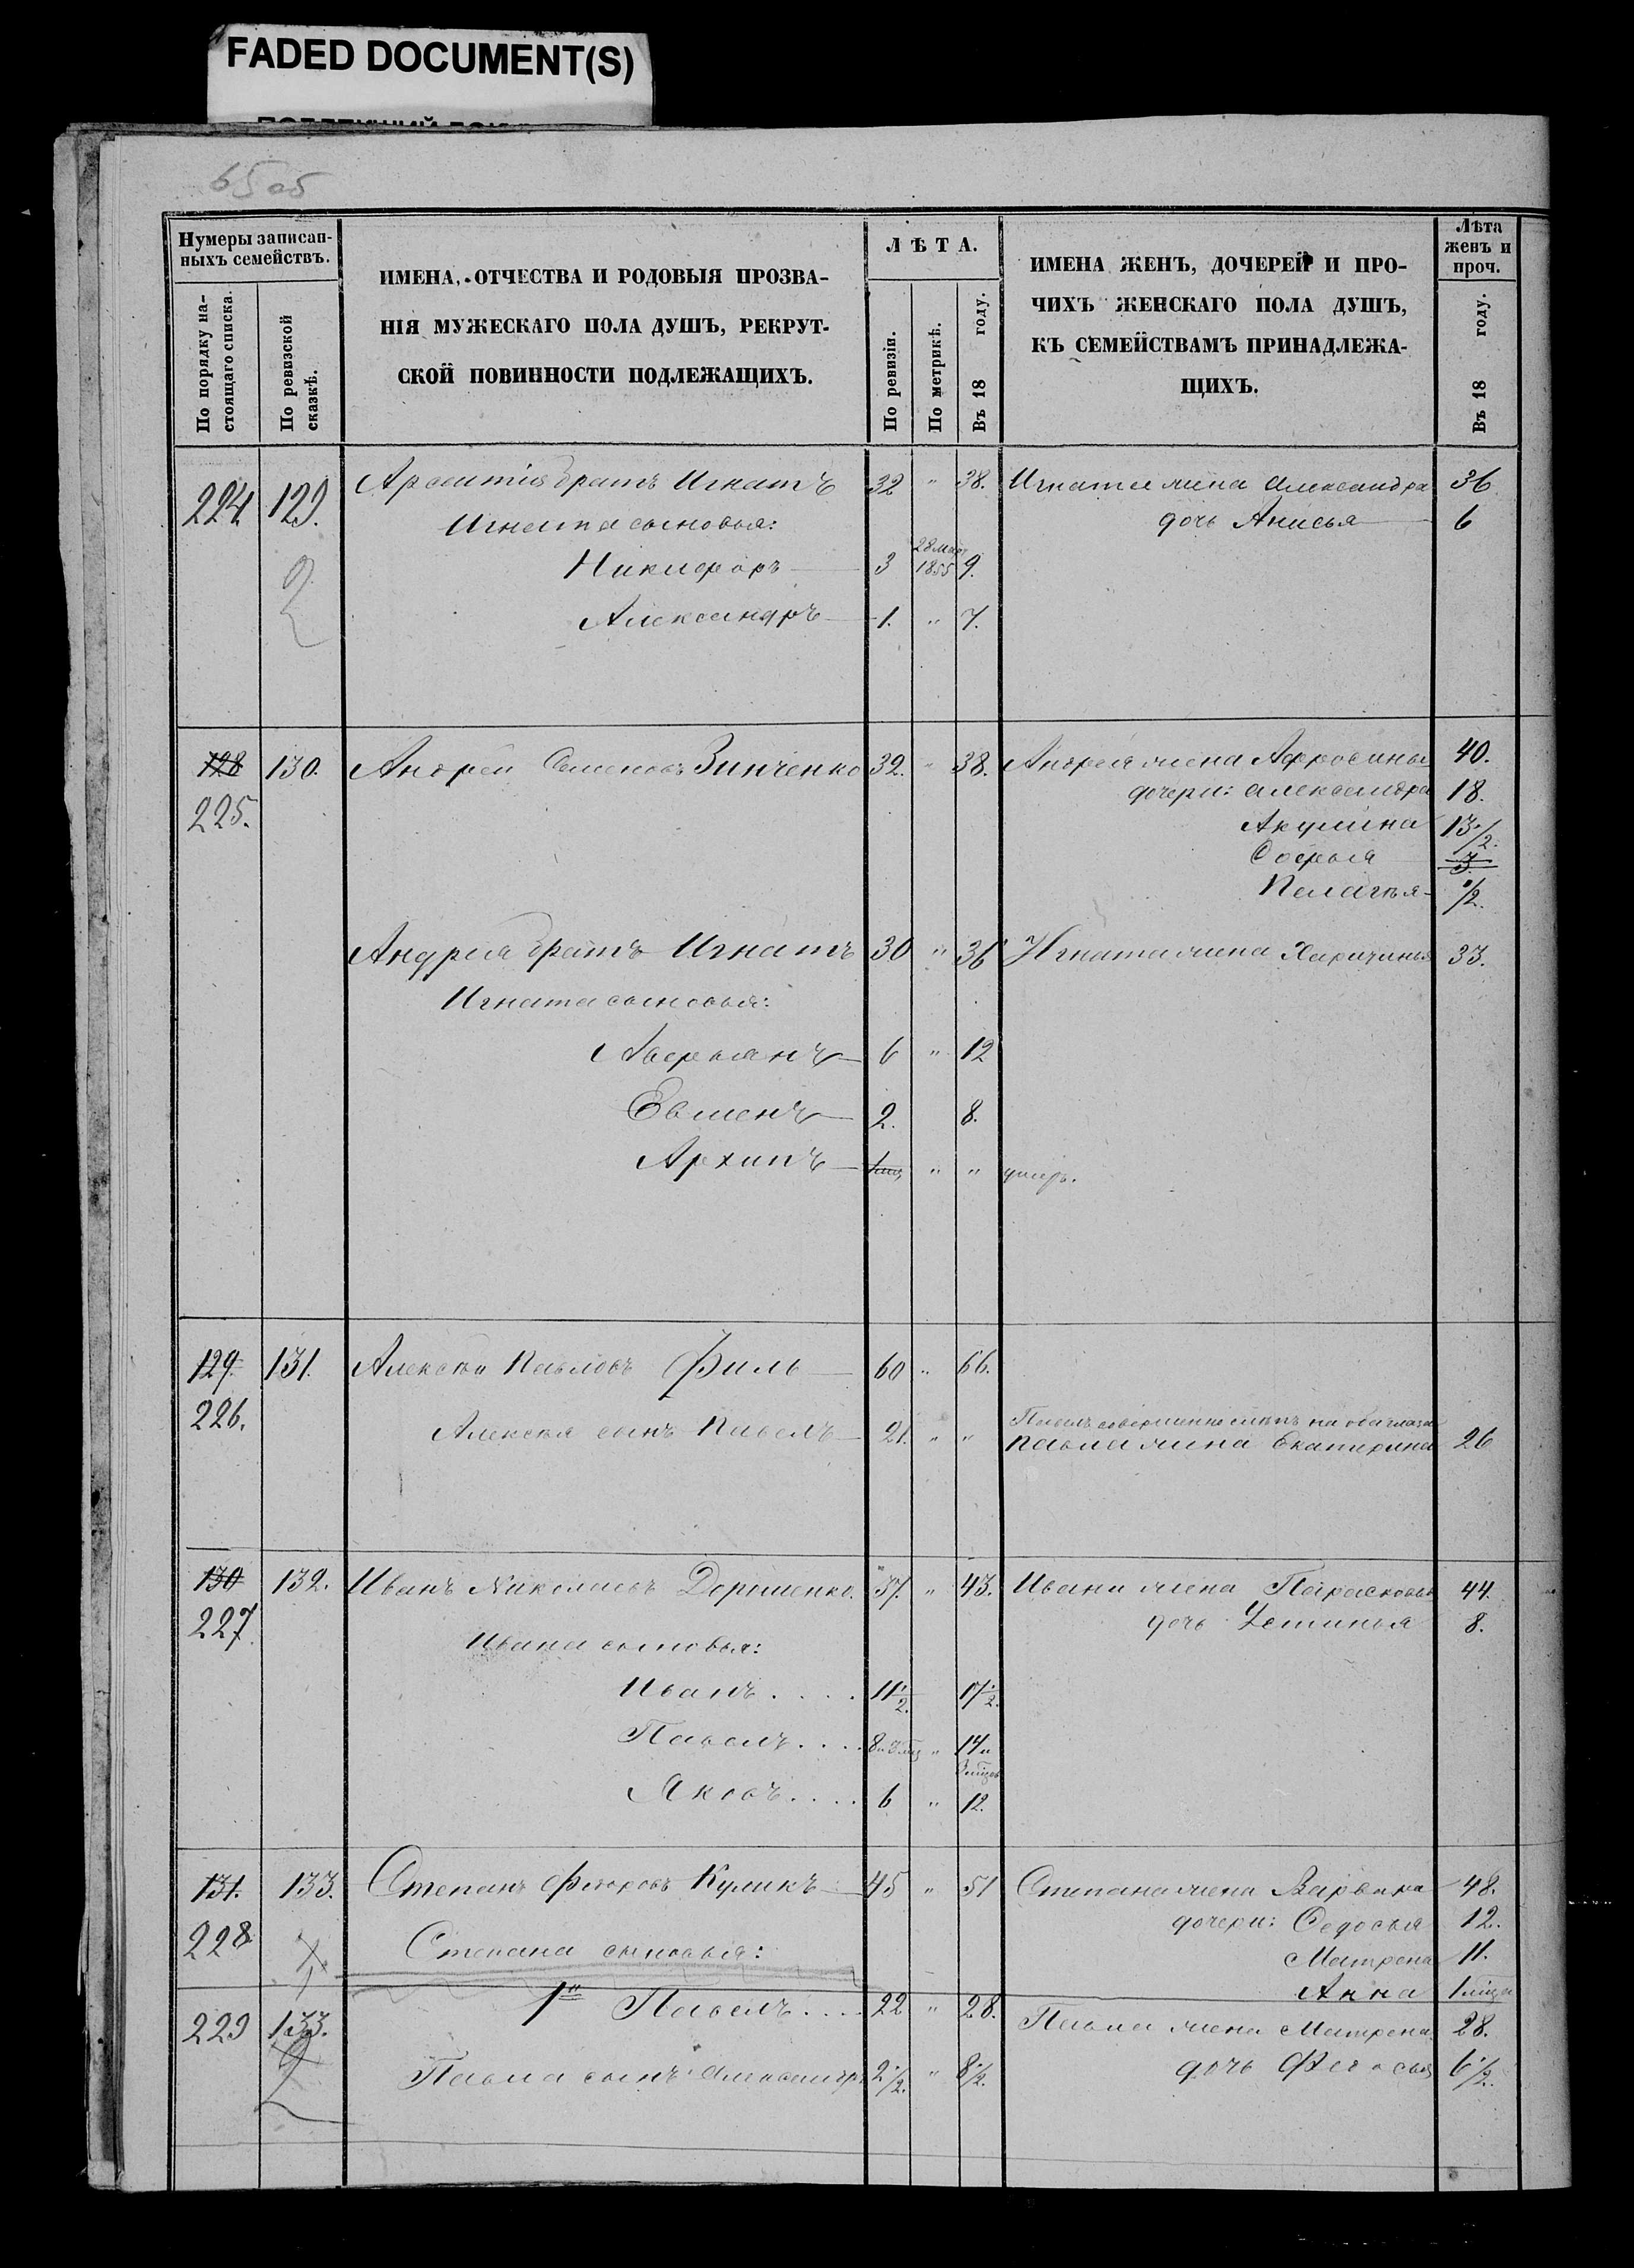 FADED DOCUMENT(S)
65 об
Нумеры записан-
ныхъ семействъ.
По порядку на-
стоящаго списка.
По ревизской
сказкѣ.
ИМЕНА, ОТЧЕСТВА И РОДОВЫЯ ПРОЗВА-
НІЯ МУЖЕСКАГО ПОЛА ДУШЪ, РЕКРУТ-
СКОЙ ПОВИННОСТИ ПОДЛЕЖАЩИХЪ.
ЛѢТА.
По ревизіи.
По метрикѣ.
Въ 18 году.
ИМЕНА ЖЕНЪ, ДОЧЕРЕЙ И ПРО-
ЧИХЪ ЖЕНСКАГО ПОЛА ДУШЪ,
КЪ СЕМЕЙСТВАМЪ ПРИНАДЛЕЖА-
ЩИХЪ.
Лѣта
женъ и
проч.
Въ 18 году.
224 129. братъ Игнатъ 32 " 38. Игната жена Александра 36
Игната сыновья: дочь Анисья 6
Никифоръ 3 28 Мар 1855 9.
Александръ 1. " 7.
2
128 130. Андрей Семеновъ Зинченко 32. " 38. Андрея жена Афросинья 40.
225. дочери: Александра 18.
Акулина 13 1/2.
Софья 3.
Пелагѣя 1/2.
Андрея братъ Игнатъ 30 " 36 Игната жена Харитинья 33.
Игната сыновья:
Аверьянъ 6 " 12
Евменъ 2. 8.
Архипъ 1 мц " " умеръ.
129. 131. Алексѣй Павловъ Филь 60 " 66.
226. Алексѣя сынъ Павелъ 21. " " Павелъ совершенно слѣпъ на оба глаза
Павла жена Екатерина 26
130 132. Иванъ Николаевъ Дорошенко. 37. " 43. Ивана жена Парасковья 44.
227. дочь Устинья 8.
Ивана сыновья:
Иванъ . . . . 11 1/2. 17 1/2.
Павелъ . . . . 8 и 3 мц " 14 и
3 мѣсц
Яковъ . . . . 6 " 12.
131. 133. Степанъ Федоровъ Куликъ 45 " 51 Степана жена Варвара 48.
228 дочери: Федосья 12.
Степана сыновья: Матрена 11.
Анна 1 мѣсца
229 133. 1й Павелъ . . . . 22 " 28. Павла жена Матрена 28.
2 Павла сынъ Александръ 2 1/2. " 8 1/2. дочь 6 1/2.